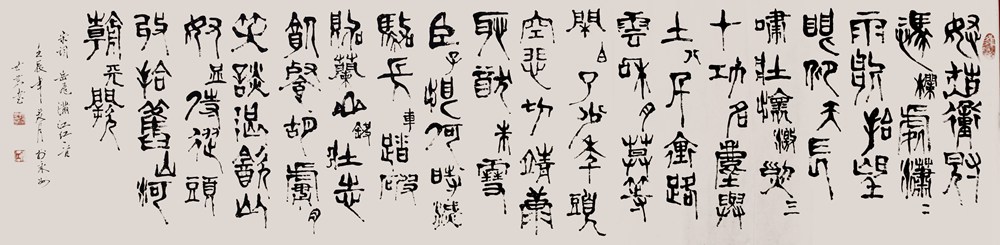 怒髮衝冠
憑欄處瀟〻
雨歇抬望
眼仰天長
嘯壯懷激烈三
十功名塵與
土八千里路
雲和月莫等
閑白了少年頭
空悲切靖康
恥猶未雪
臣子恨何時滅
駕長車踏破
賀蘭山缺壯志
飢餐胡虜肉
笑談渴飲匈
奴血待從頭
收拾舊山河
朝天闕
宋詞岳飛滿江红
壬辰年